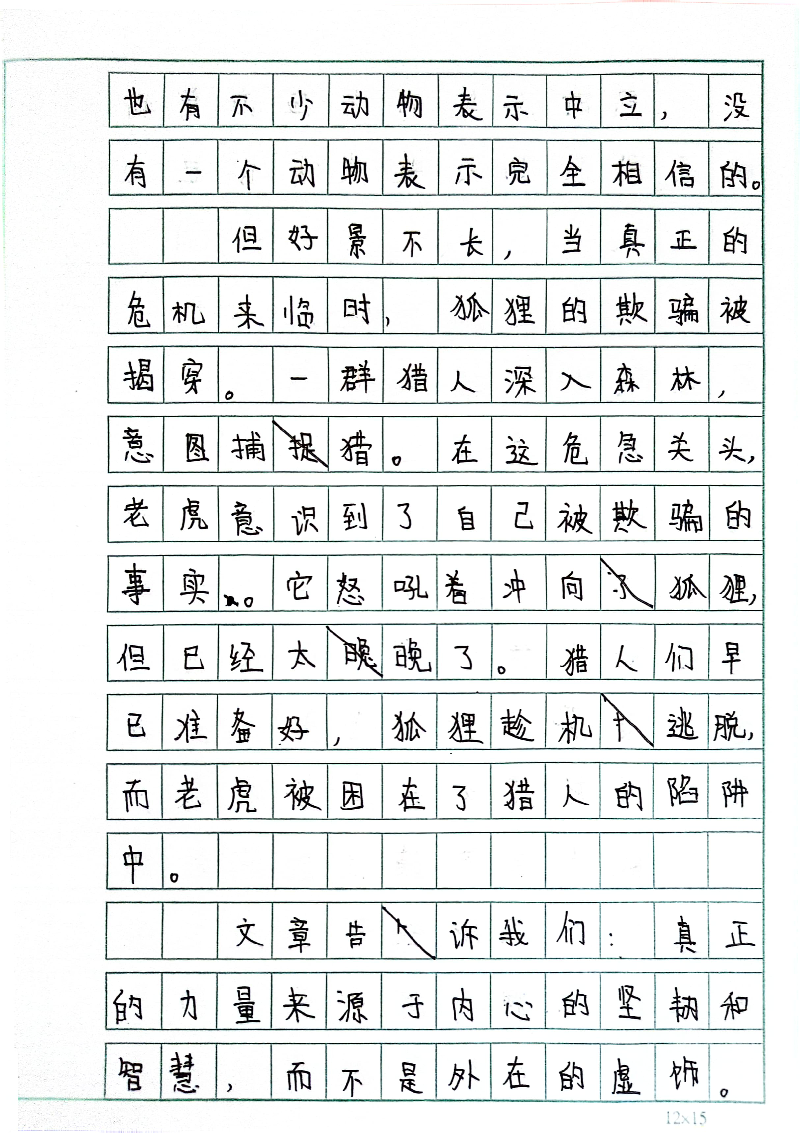 也有不少动物表示中立，没
有一个动物表示完全相信的。
但好景不长，当真正的
危机来临时，狐狸的欺骗被
揭穿。一群猎人深入森林，
意图捕猎。在这危急关头，
老虎意识到了自己被欺骗的
事实。它怒吼着冲向狐狸，
但已经太晚了。猎人们早
已准备好，狐狸趁机逃脱，
而老虎被困在了猎人的陷阱
中。
文章告诉我们：真正
的力量来源于内心的坚韧和
智慧，而不是外在的虚饰。
12×15